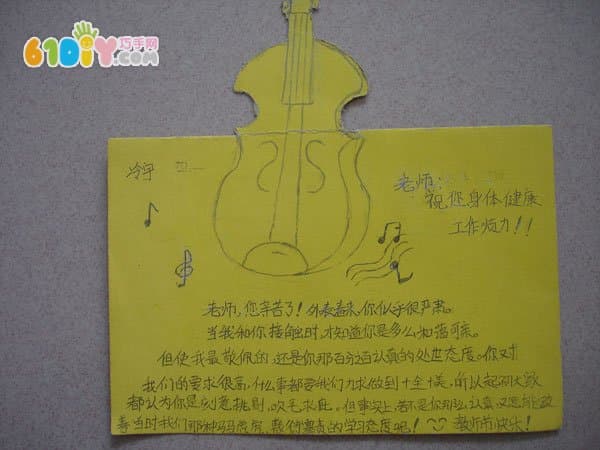 61DIY巧手网
.com
冷宇
老师:
祝您身体健康
工作顺力!!
老师,您辛苦了!外表看来,你似乎很严肃。
当我和你接触时,才知道你是多么和蔼可亲。
但使我最敬佩的,还是你那百分百认真的处世态度。你对
我们的要求很高,什么事都要我们力求做到十全十美,所以起初大家
都认为你是刻意挑剔,吹毛求疵。但事实上,若不是你那么认真,又怎能改
善当时我们那种马虎,敷衍塞责的学习态度呢!教师节快乐!